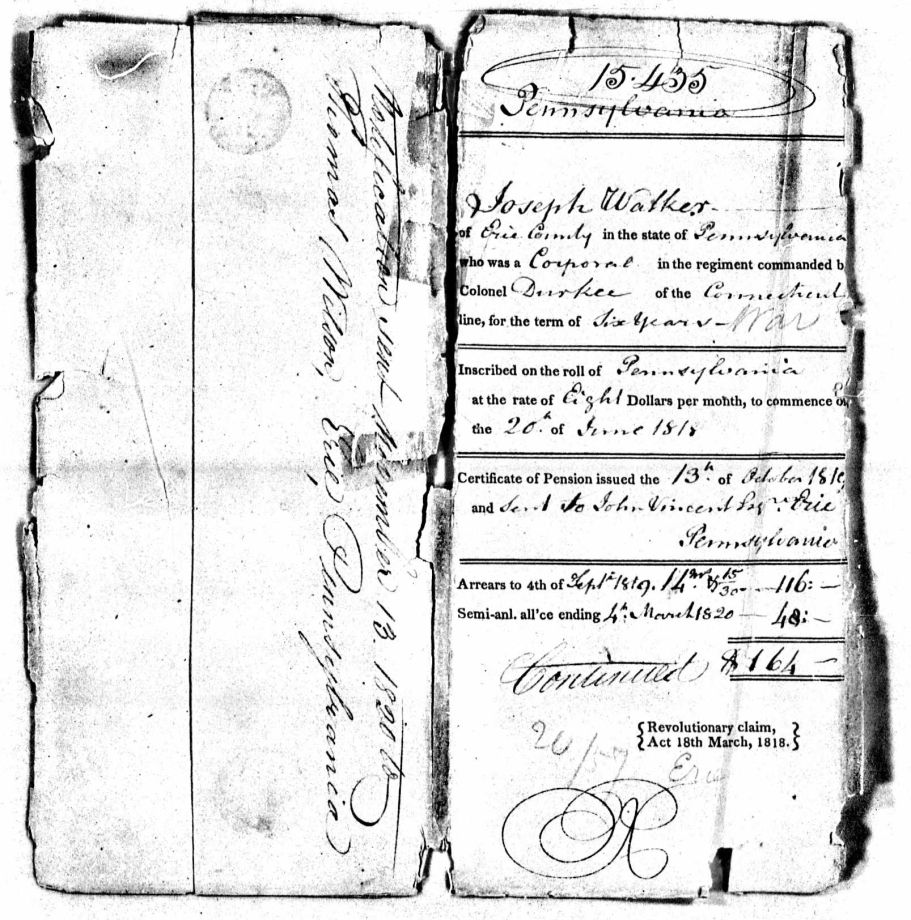 Notification sent November 13. 1820 to
Thomas Wilson, Erie Pennsylvania
15.435
Pennsylvania
Joseph Walker
of Erie County in the state of Pennsylvania
who was a Corporal in the regiment commanded b
Colonel Durkee of the Connecticut
line, for the term of Six Years - War
Inscribed on the roll of Pennsylvania
at the rate of Eight Dollars per month, to commence on
the 20th of June 1818
Certificate of Pension issued the 13th of October 1819
and Sent to John Vincent Esqr. Erie
Pennsylvania
Arrears to 4th of Septr 1819. 14 ms 15/30 — 116: —
Semi-anl. all'ce ending 4th March 1820 — 48: —
Continued $ 164 —
{Revolutionary claim,}
{Act 18th March, 1818.}
Erie
R